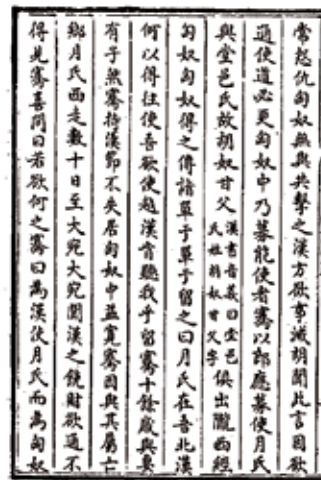 常怨仇匈奴無與共擊之漢方欲事滅胡聞此言因欲
通使道必更匈奴中乃募能使者騫以郎應募使月氏
與堂邑氏故胡奴甘父漢書音義曰堂邑氏姓胡奴甘父字俱出隴西經
匈奴匈奴得之傳詣單于單于留之曰月氏在吾北漢
何以得往使吾欲使越漢肯聽我乎留騫十餘歲與妻
有子然騫持漢節不失居匈奴中益寬騫因與其屬亡
鄉月氏西走數十日至大宛大宛聞漢之饒財欲通不
得見騫喜問曰若欲何之騫曰為漢使月氏而為匈奴